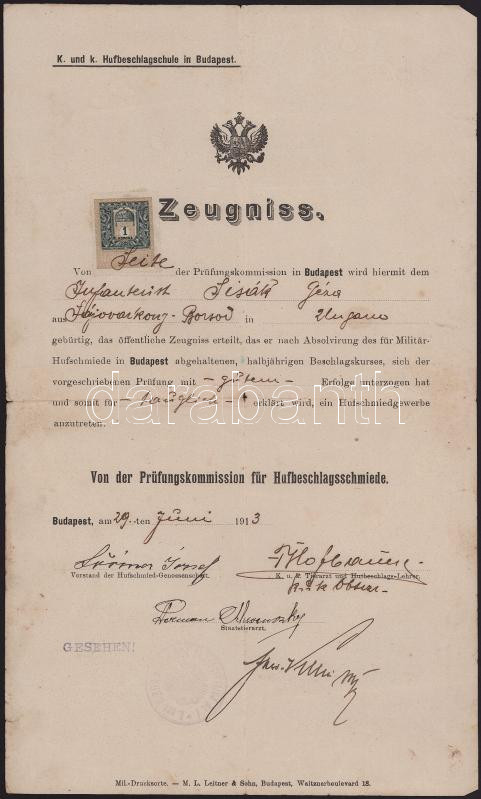 K. und k. Hufbeschlagschule in Budapest.
Zeugniss.
1
Von Seite der Prüfungskommission in Budapest wird hiermit dem
Infanterist Géza
aus Borsod in Ungarn
gebürtig, das öffentliche Zeugniss erteilt, das er nach Absolvirung des für Militär-
Hufschmiede in Budapest abgehaltenen, halbjährigen Beschlagskurses, sich der
vorgeschriebenen Prüfung mit - gutem - Erfolge unterzogen hat
darabanth
und somit für - tauglich - erklärt wird, ein Hufschmiedgewerbe
anzutreten.
Von der Prüfungskommission für Hufbeschlagsschmiede.
Budapest, am 29.-ten Juni 1913
József
Vorstand der Hufschmied-Genossenschaft.
K. u. k. Tierarzt und Hufbeschlags-Lehrer.
Herman
Staatstierarzt.
GESEHEN!
Mil.-Drucksorte. — M. L. Leitner & Sohn, Budapest, Waitznerboulevard 18.